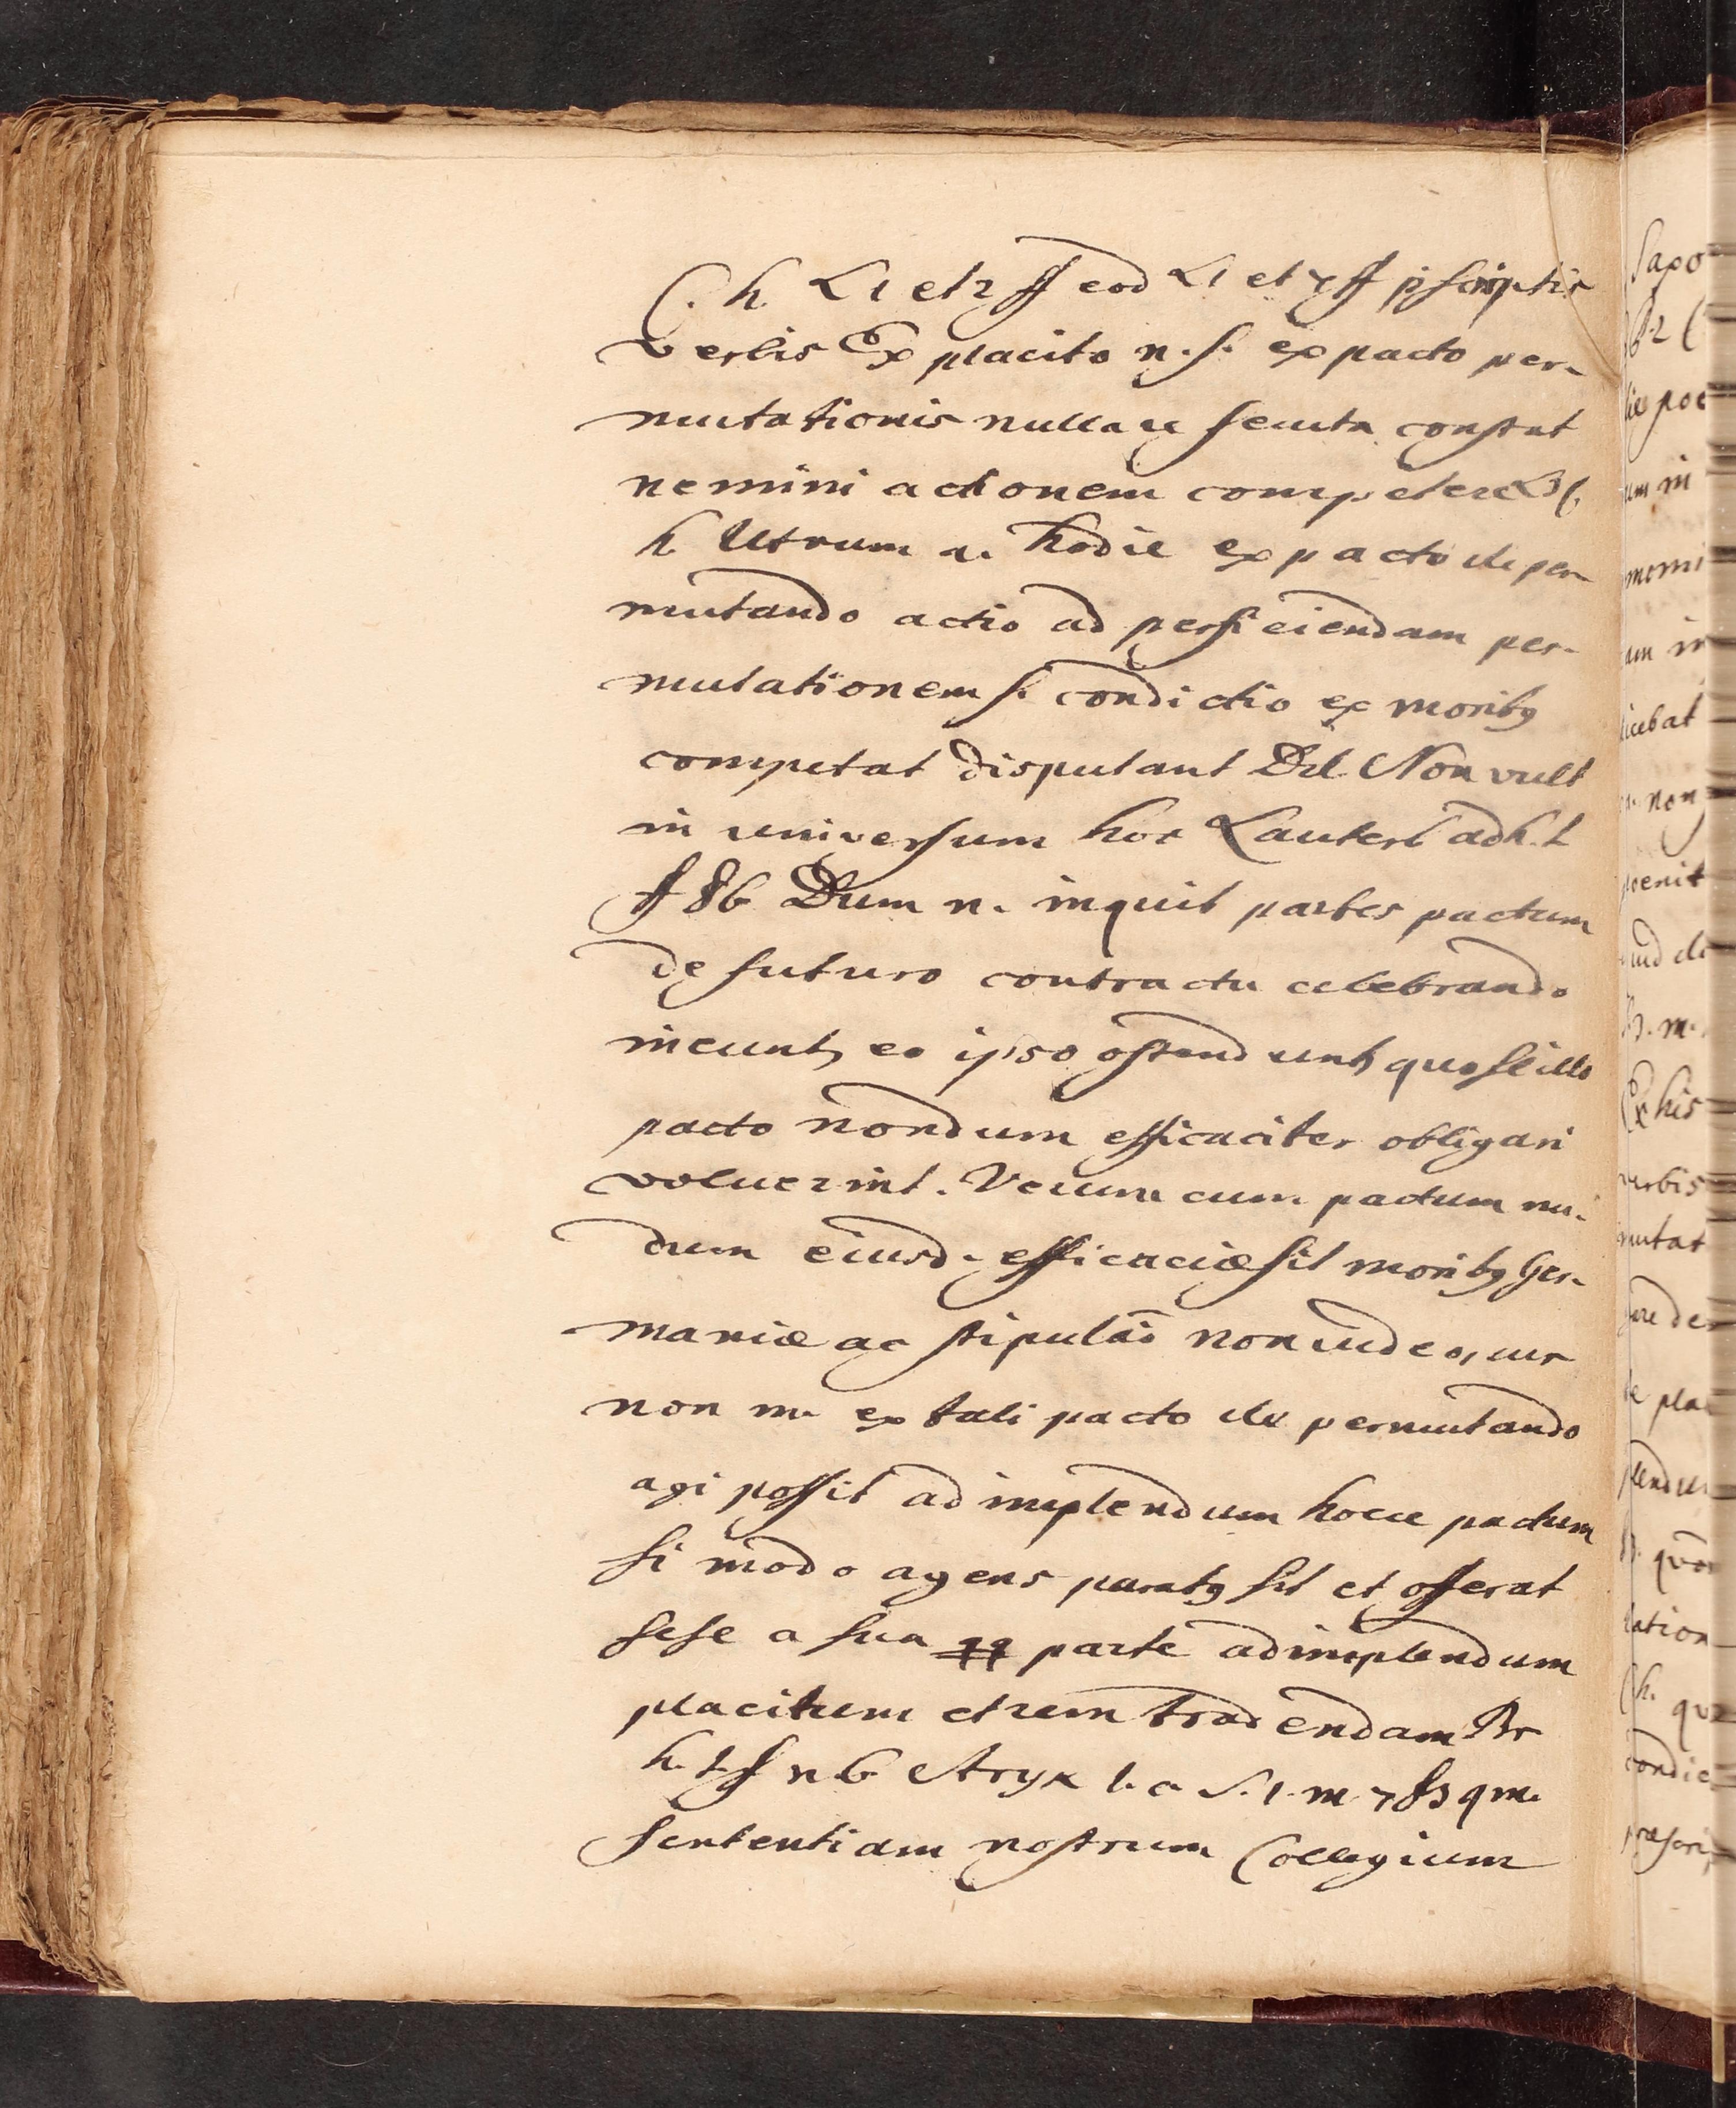 C. h. L 1 et 2 ff eod L 1 et 7 ff p̃scriptis
verbis Ex placito n. s. ex pacto per-
mutationis nulla re secuta constat
nemini actionem competere L 3 C.
h. Utrum a. hodie ex pacto de per-
mutando actio ad perficiendam per-
mutationem s. condictio ex moribꝰ
competat disputant Dd. Non vult
in universum hoc Lauterb ad h. t.
§ 86 Dum n. inquit partes pactum
de futuro contractu celebrando
ineunt, eo ipso ostendunt, quo se illo
pacto nondum efficaciter obligari
voluerint. Verum cum pactum nu-
dum eiusd. efficaciæ sit moribꝰ Ger-
maniæ ac stipulãõ non video, cur
non m. ex tali pacto de permutando
agi possit ad implendum hocce pactum
si modo agens paratꝰ sit et offerat
sese a sua qq parte ad implendum
placitum et rem tradendam Br
h. t. § n 6 Stryk l. c S. 1. m 7 § 3 qm.
sententiam nostrum Collegium
Saxo
lie poe
um in
momi
am in
icebat
a. non
poenit
uid de
D. m.
Ex his
verbis
mutat
ere de
te pla
plendum
lation
C. h. qu
condic
præscri